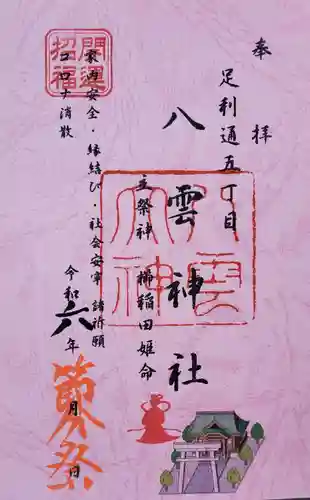 奉拝
足利通五丁目
八雲神社
主祭神 櫛稲田姫命
家内安全・縁結び・社会安寧 諸祈願
コロナ消散
開運
招福
令和六年
節分祭
月
日